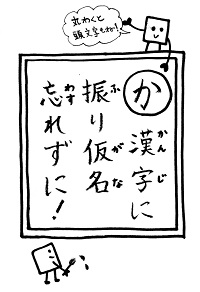 丸わくと
頭文字もね!
か 漢字に
かんじ
振り仮名
ふ が な
忘れずに!
わす